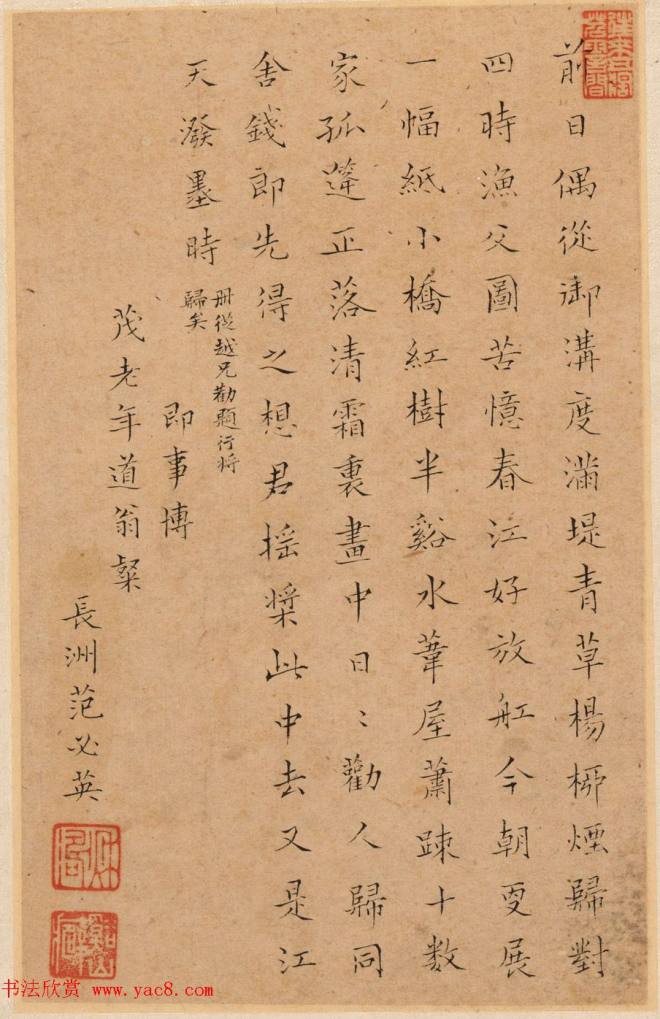 前日偶從御溝度滿堤青草楊桺煙歸對
四時漁父圖苦憶春江好放舡今朝更展
一幅紙小橋紅樹半谿水葦屋蕭踈十數
家孤篷正落清霜裏畫中日〻勸人歸同
舍錢郎先得之想君揺槳此中去又是江
天潑墨時
冊從越兄勸題行将
歸矣
即事博
茂老年道翁粲
長洲范必英
书法欣赏 www.yac8.com